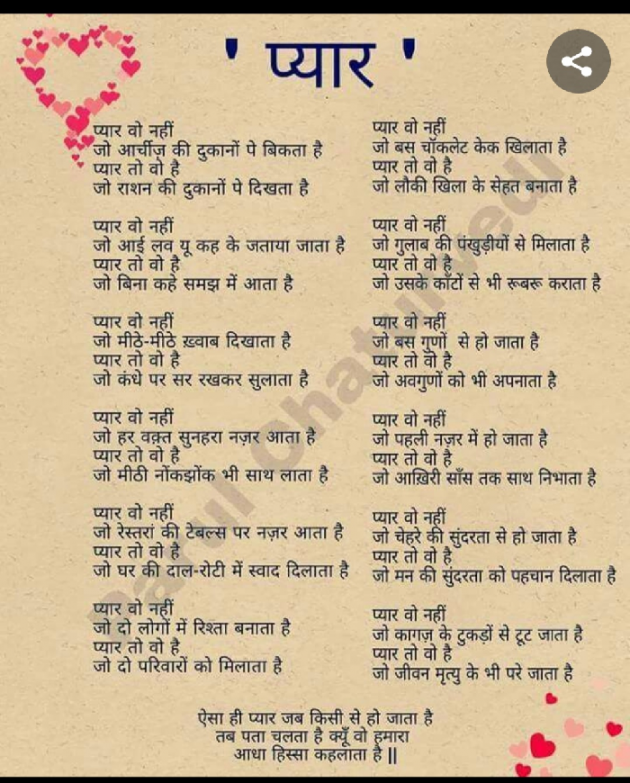 ' प्यार '
प्यार वो नहीं
जो आर्चीज़ की दुकानों पे बिकता है
प्यार तो वो है
जो राशन की दुकानों पे दिखता है
प्यार वो नहीं
जो आई लव यू कह के जताया जाता है
प्यार तो वो है
जो बिना कहे समझ में आता है
प्यार वो नहीं
जो मीठे-मीठे ख़्वाब दिखाता है
प्यार तो वो है
जो कंधे पर सर रखकर सुलाता है
प्यार वो नहीं
जो हर वक़्त सुनहरा नज़र आता है
प्यार तो वो है
जो मीठी नोंकझोंक भी साथ लाता है
प्यार वो नहीं
जो रेस्तरां की टेबल्स पर नज़र आता है
प्यार तो वो है
जो घर की दाल-रोटी में स्वाद दिलाता है
प्यार वो नहीं
जो दो लोगों में रिश्ता बनाता है
प्यार तो वो है
जो दो परिवारों को मिलाता है
प्यार वो नहीं
जो बस चॉकलेट केक खिलाता है
प्यार तो वो है
जो लौकी खिला के सेहत बनाता है
प्यार वो नहीं
जो गुलाब की पंखुड़ीयों से मिलाता है
प्यार तो वो है
जो उसके काँटों से भी रूबरू कराता है
प्यार वो नहीं
जो बस गुणों से हो जाता है
प्यार तो वो है
जो अवगुणों को भी अपनाता है
प्यार वो नहीं
जो पहली नज़र में हो जाता है
प्यार तो वो है
जो आख़िरी साँस तक साथ निभाता है
प्यार वो नहीं
जो चेहरे की सुंदरता से हो जाता है
प्यार तो वो है
जो मन की सुंदरता को पहचान दिलाता है
प्यार वो नहीं
जो कागज़ के टुकड़ों से टूट जाता है
प्यार तो वो है
जो जीवन मृत्यु के भी परे जाता है
ऐसा ही प्यार जब किसी से हो जाता है
तब पता चलता है क्यूँ वो हमारा
आधा हिस्सा कहलाता है ||
Parul Chaturvedi